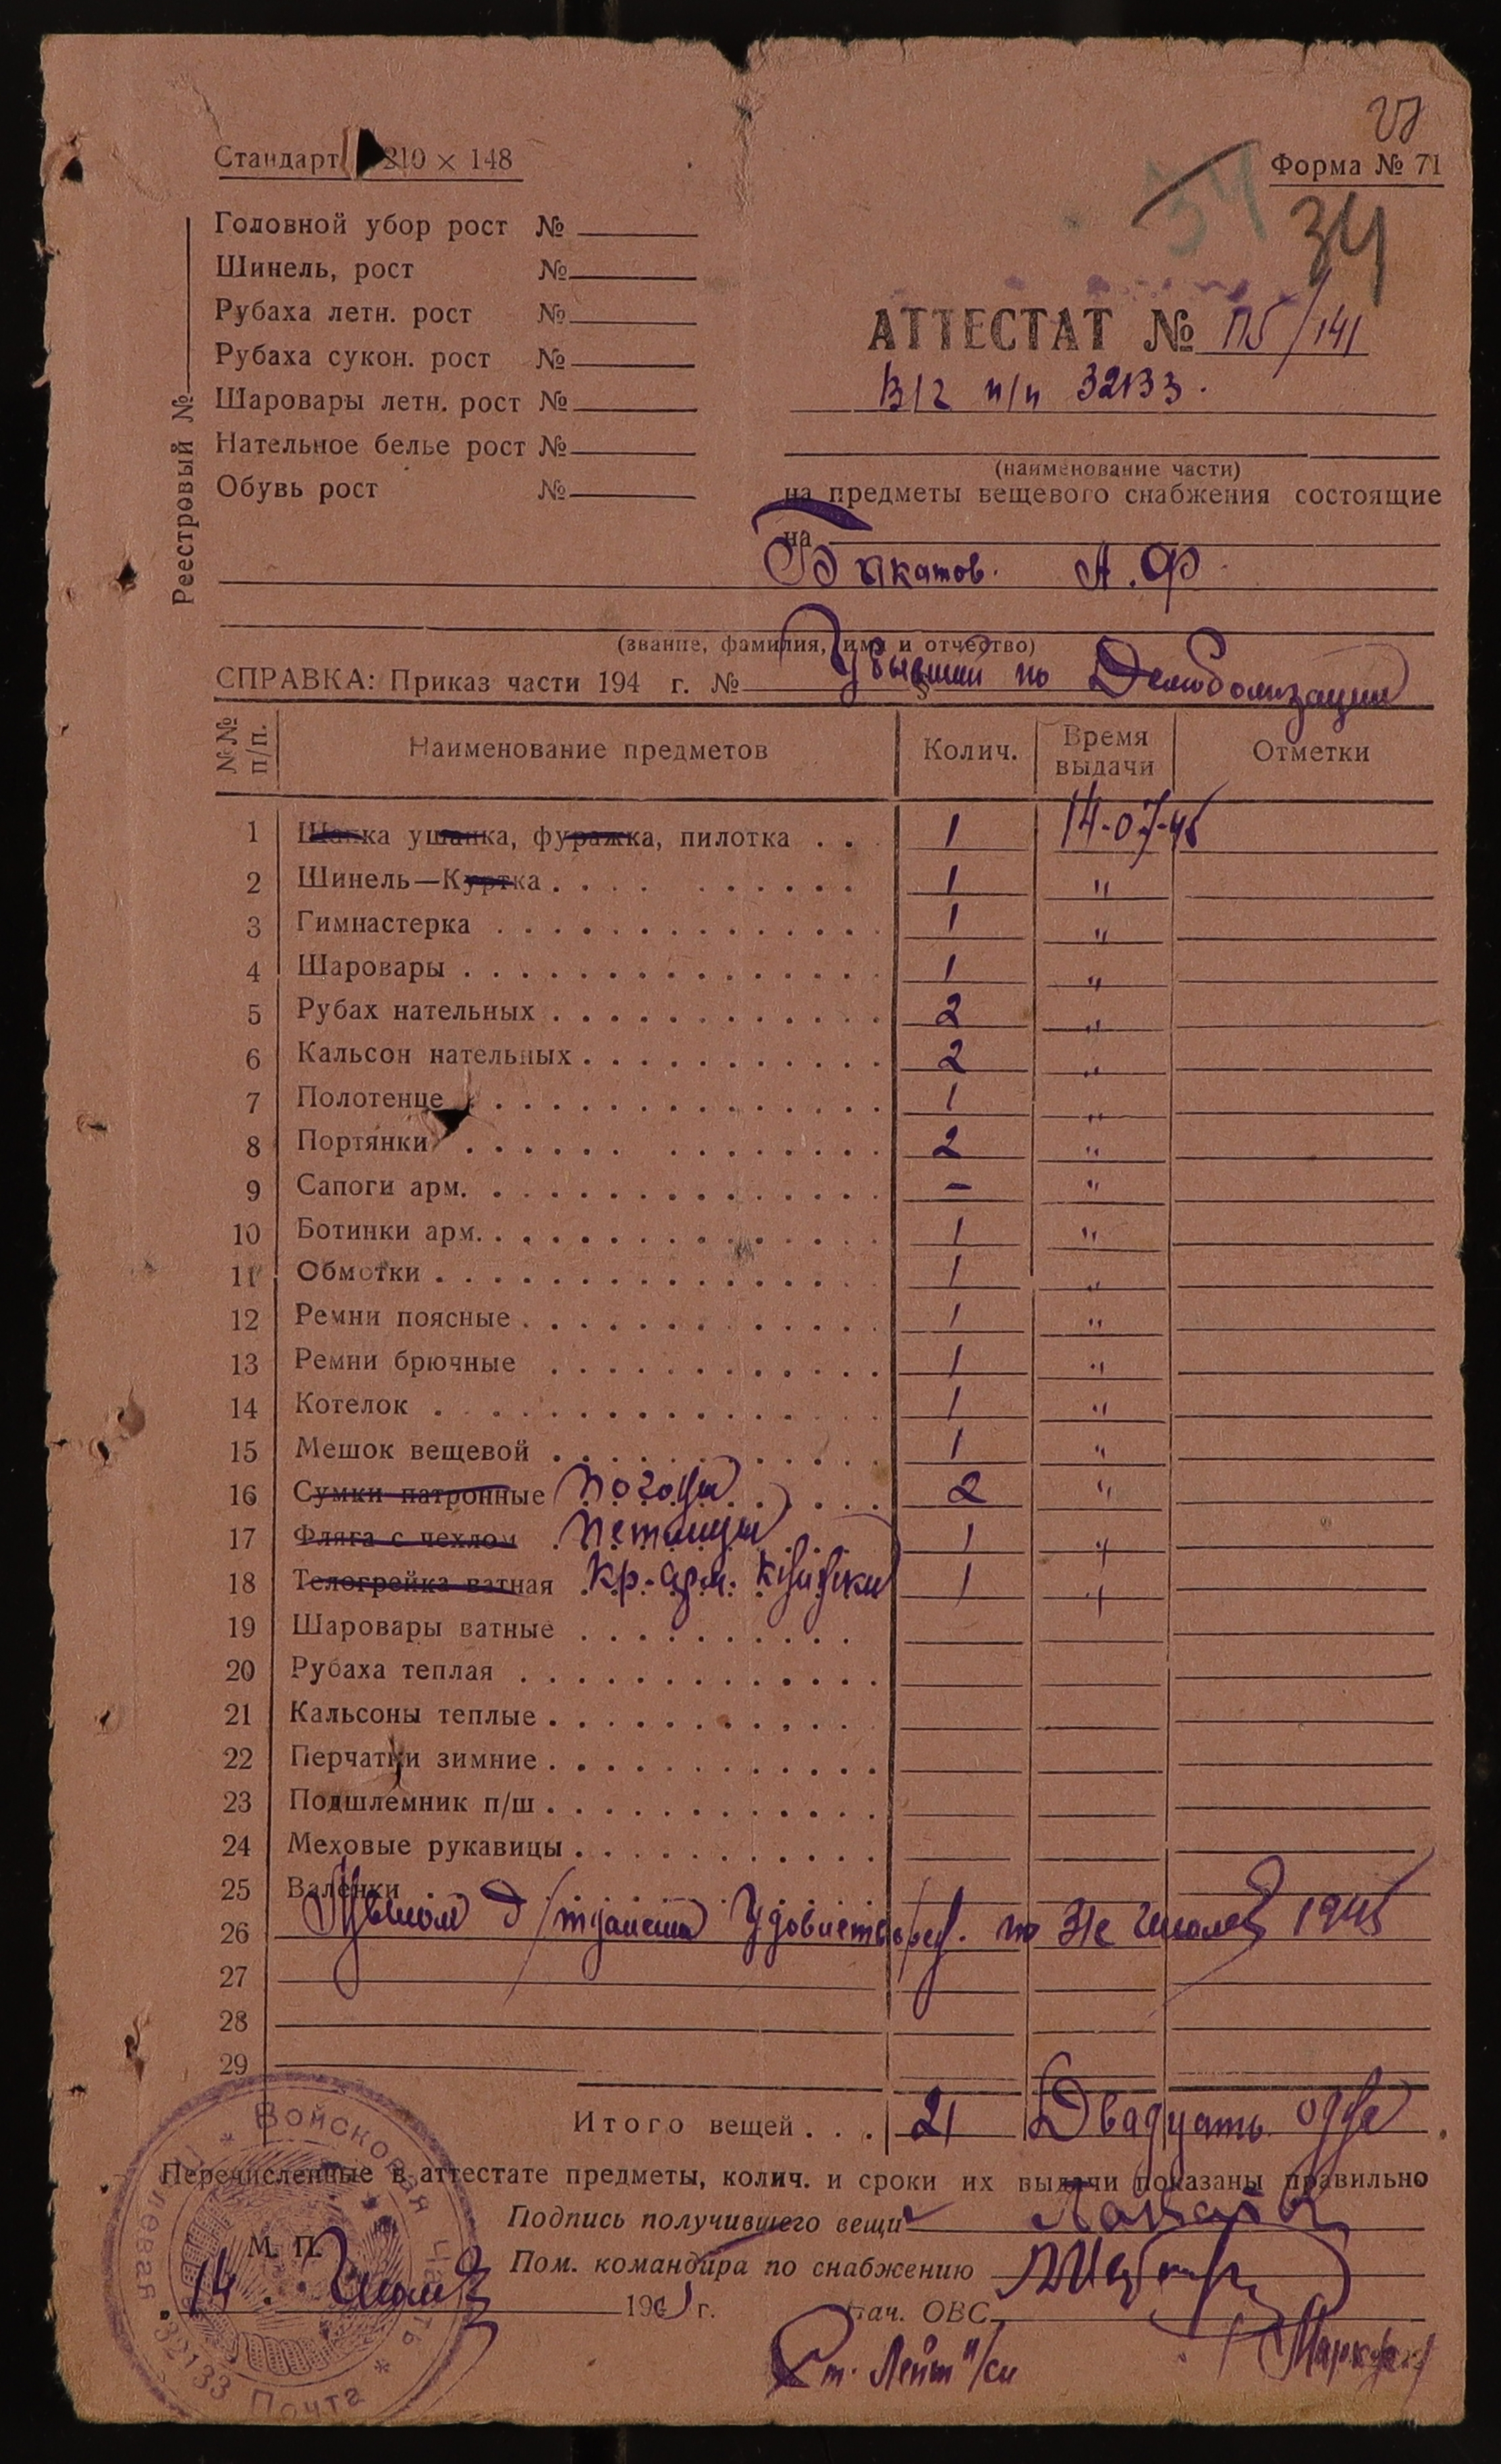 27
Стандарт 210 × 148
Форма № 71
34
34
Реестровый №
Головной убор рост №
Шинель, рост №
Рубаха летн. рост №
Рубаха сукон. рост №
Шаровары летн. рост №
Нательное белье рост №
Обувь рост №
АТТЕСТАТ № 115/141
В/ч п/п 32133.
(наименование части)
на предметы вещевого снабжения состоящие
на
Быкатов. А.Ф.
(звание, фамилия, имя и отчество)
СПРАВКА: Приказ части 194 г. № Убывший по Демоболизации
№№ п/п. Наименование предметов Колич. Время выдачи Отметки
1 Шапка ушанка, фуражка, пилотка . . 1 14-07-45
2 Шинель—Куртка 1 "
3 Гимнастерка 1 "
4 Шаровары 1 "
5 Рубах нательных 2 "
6 Кальсон нательных 2 "
7 Полотенце 1 "
8 Портянки 2 "
9 Сапоги арм. - "
10 Ботинки арм. 1 "
11 Обмотки 1 "
12 Ремни поясные 1 "
13 Ремни брючные 1 "
14 Котелок 1 "
15 Мешок вещевой 1 "
16 Сумки патронные Погоны 2 "
17 Фляга с чехлом Петлицы 1 "
18 Телогрейка ватная Кр-арм. книжки 1 "
19 Шаровары ватные
20 Рубаха теплая
21 Кальсоны теплые
22 Перчатки зимние
23 Подшлемник п/ш
24 Меховые рукавицы
25 Валенки
26 Мылом д/туалета Удовлетворен. по Июль 1945
27
28
29
Итого вещей . . . 21 Двадцать одна
Перечисленные в аттестате предметы, колич. и сроки их выдачи показаны правильно
Подпись получившего вещи
М. П.
Пом. командира по снабжению
14. Июля 194 г.
Нач. ОВС
Ст. Лейт и/сл
Войсковая часть
Полевая Почта 32133